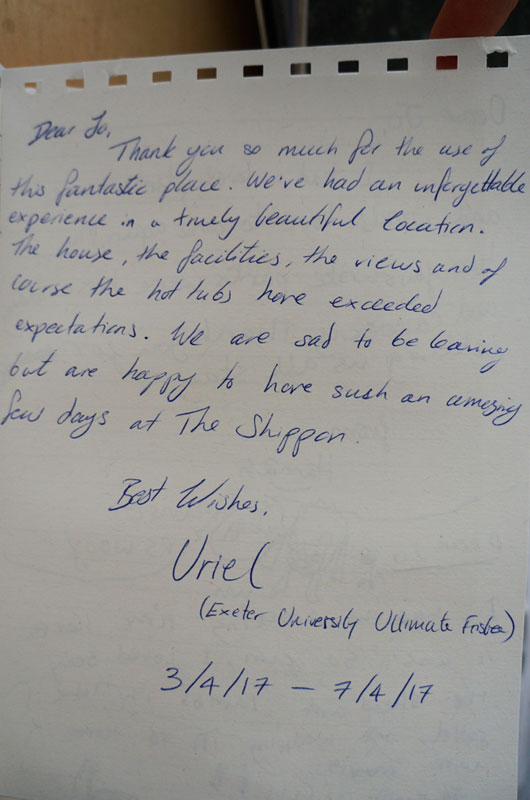 Dear Jo,
Thank you so much for the use of
this fantastic place. We've had an unforgettable
experience in a truely beautiful location.
The house, the facilities, the views and of
course the hot tubs have exceeded
expectations. We are sad to be leaving
but are happy to have such an amazing
few days at The Shippon.
Best Wishes,
Uriel
(Exeter University Ultimate Frisbee)
3/4/17 – 7/4/17